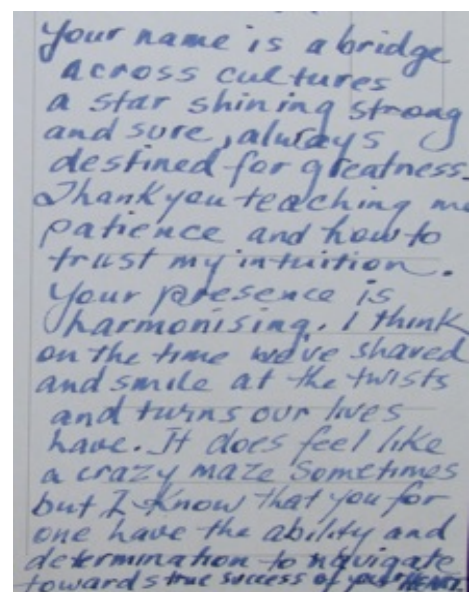 Your name is a bridge
across cultures
a star shining strong
and sure, always
destined for greatness.
Thank you teaching me
patience and how to
trust my intuition.
Your presence is
harmonising. I think
on the time we've shared
and smile at the twists
and turns our lives
have. It does feel like
a crazy maze sometimes
but I know that you for
one have the ability and
determination to navigate
towards true success of your HEART.